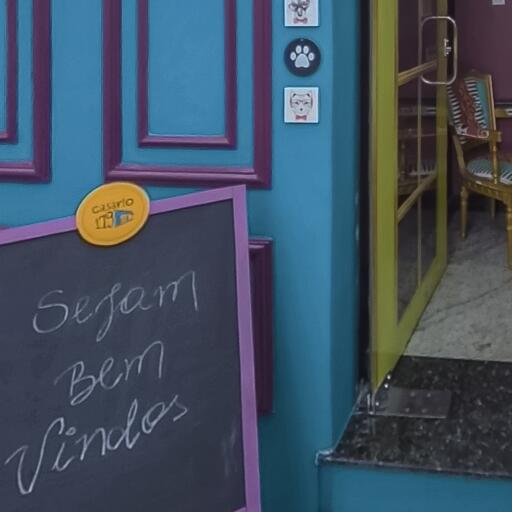 casario
Sejam
Bem
Vindos